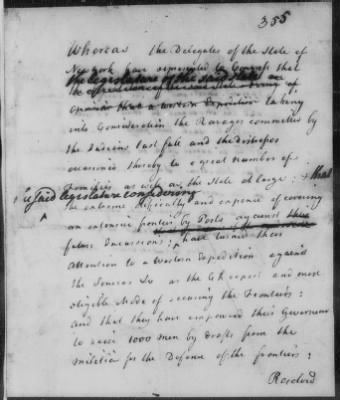 355
Whereas the Delegates of the State of
New York have represented to Congress that
the legislature of the said State
taking
into Consideration the Ravages committed by
the Indians last fall and the distresses
occasioned thereby to a great number of
Families as well as the State at large: & that
said legislature considering
the extreme difficulty and expence of covering
an extensive frontier by Posts against
future Incursions; have turned their
attention to a Western Expedition against
the Senecas as the and most
eligible Mode of securing the Frontiers:
and that they have empowered their Governour
to raise 1000 men by drafts from the
militia for the Defence of the frontiers:
Resolved